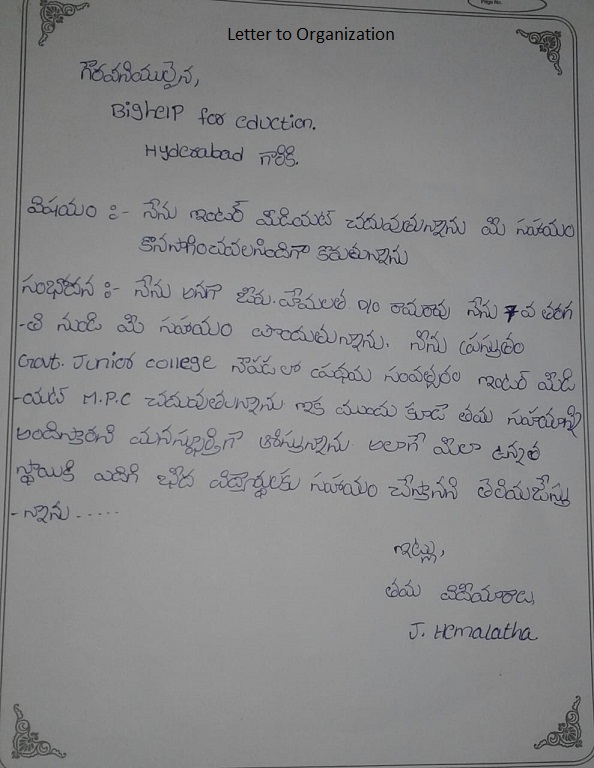 Page No:
Letter to Organization
గౌరవనియులైన,
BigHelP for eduction.
Hyderabad గారికి.
విషయం :- నేను ఇంటర్ మీడియట్ చదువుతున్నాను మీ సహయం
కొనసాగించవలసిందిగా కోరుతున్నాను
సంభోదన :- నేను అనగా జెరు. హేమలత D/o రామారావు నేను 7వ తరగ
-తి నుండి మీ సహయం పొందుతున్నాను. నేను ప్రస్తుతం
Govt. Junior college నౌపడ లో ప్రథమ సంవత్సరం ఇంటర్ మీడి
-యట్ M.P.C చదువుతున్నాను ఇక ముందు కూడా తమ సహయాన్ని
అందిస్తారని మనస్ఫూర్తిగా ఆశిస్తున్నాను. అలాగే మీలా ఉన్నత
స్థాయికి ఎదిగి పేద విద్యార్థులకు సహయం చేస్తానని తెలియజేస్తు
-న్నాను.....
ఇట్లు,
తమ విదేయురాలు,
J. Hemalatha